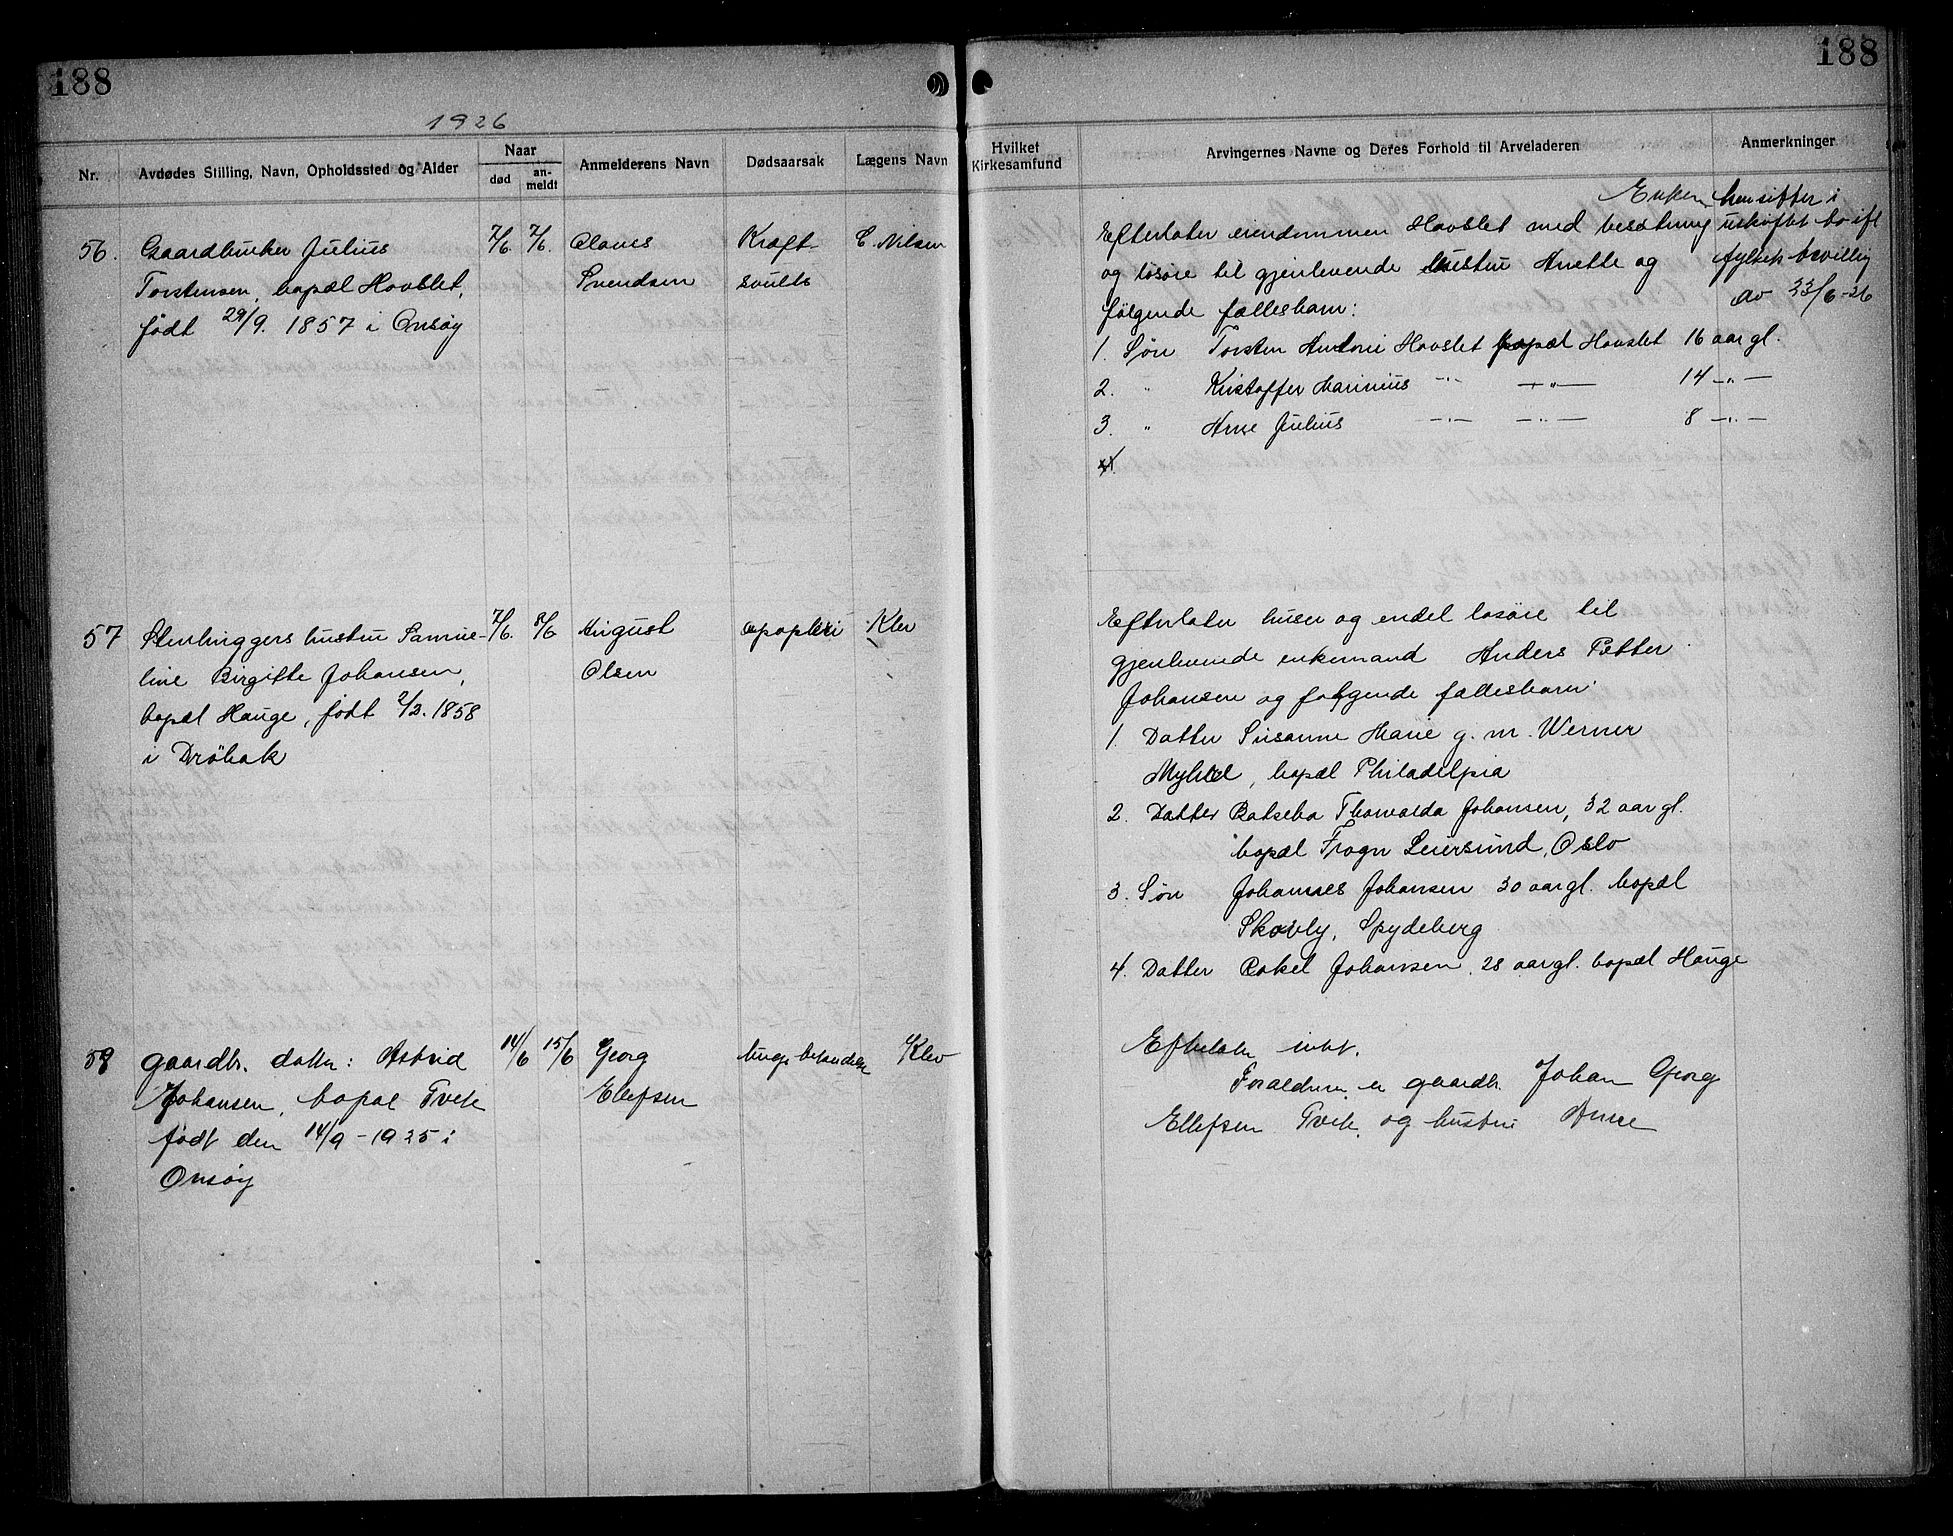 188
188
1926
Nr.
Avdødes Stilling, Navn, Opholdssted og Alder
Naar
død
an-
meldt
Anmelderens Navn
Dødsaarsak
Lægens Navn
Hvilket
Kirkesamfund
Arvingernes Navne og Deres Forhold til Arveladeren
Anmerkninger
56.
Gaardbruker Julius
Torstensen, bopæl Hovslet,
født 29/9. 1857 i Onsøy
7/6 7/6.
Olaves
Svendsen
Kræft-
svulls
C. Nilsen
Efterlater eiendommen Hovslet med besætning
og løsøre til gjenlevende hustru Anette og
følgende fællesbarn:
1. Søn Torsten Antoni Hovslet bopæl Hovslet 16 aar gl.
2. " Kristoffer Marinius -"- -"- 14 -"-
3. " Arne Julius -"- -"- 8 -"-
Enken hensitter i
uskiftet bo ifl
fylkets bevillig
av 23/6-26
57
Stenhuggers hustru Samue-
line Birgitte Johansen,
bopæl Hauge, født 2/2. 1858
i Drøbak
7/6. 8/6
August
Olsen
apoplexi
Klev
Efterlater huser og endel løsøre til
gjenlevende enkemand Anders Petter
Johansen og følgende fællesbarn:
1. Datter Susanne Marie g. m. Werner
bopæl Philadelpia
2. Datter Batseba Thorvalda Johansen, 32 aar gl.
bopæl Frogn Leiersund, Oslo
3. Søn Johannes Johansen 30 aar gl. bopæl
Skovly, Spydeberg
4. Datter Rakel Johansen 28 aar gl. bopæl Hauge
58
gaardbr. datter: Astrid
Johansen, bopæl Tvete
født den 14/9-1925 i
Onsøy
14/6 15/6
Georg
Ellefsen
lungebetændelse
Klev
Efterlater intet.
Forældrene er gaardb. Johan Georg
Ellefsen Tvete, og hustru Anne